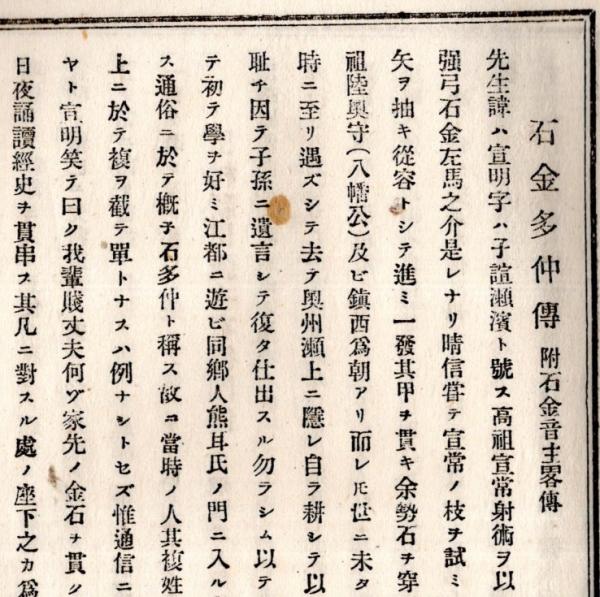 石金多仲傳 附石金音主畧傳
先生諱ハ宣明字ハ子諠瀬濱ト號ス高祖宣常射術ヲ以
强弓石金左馬之介是レナリ晴信甞テ宣常ノ枝ヲ試ミ
矢ヲ抽キ從容トシテ進ミ一發其甲ヲ貫キ余勢石ヲ穿
祖陸奥守(八幡公)及ビ鎭西爲朝アリ而レ𪜈世ニ未タ
時ニ至リ遇ズシテ去テ奥州瀬上ニ隱レ自ラ耕シテ以
耻ヂ因テ子孫ニ遺言シテ復タ仕出スル勿ラシム以テ
テ初テ學ヲ好ミ江都ニ遊ビ同鄕人熊耳氏ノ門ニ入ル
ス通俗ニ於テ概子石多仲ト稱ス故ニ當時ノ人其複姓
上ニ於テ複ヲ截テ單トナスハ例ナシトセズ惟通信ニ
ヤト宣明笑テ曰ク我輩賤丈夫何ゾ家先ノ金石ヲ貫ク
日夜誦讀經史ヲ貫串ス其凡ニ對スル處ノ座下之カ爲